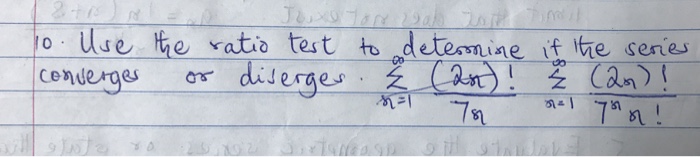 10. Use the ratio test to determine if the series
converges or diverges. ∞Σn=1 (2n)!/7n ∞Σn=1 (2n)!/7ⁿ n!